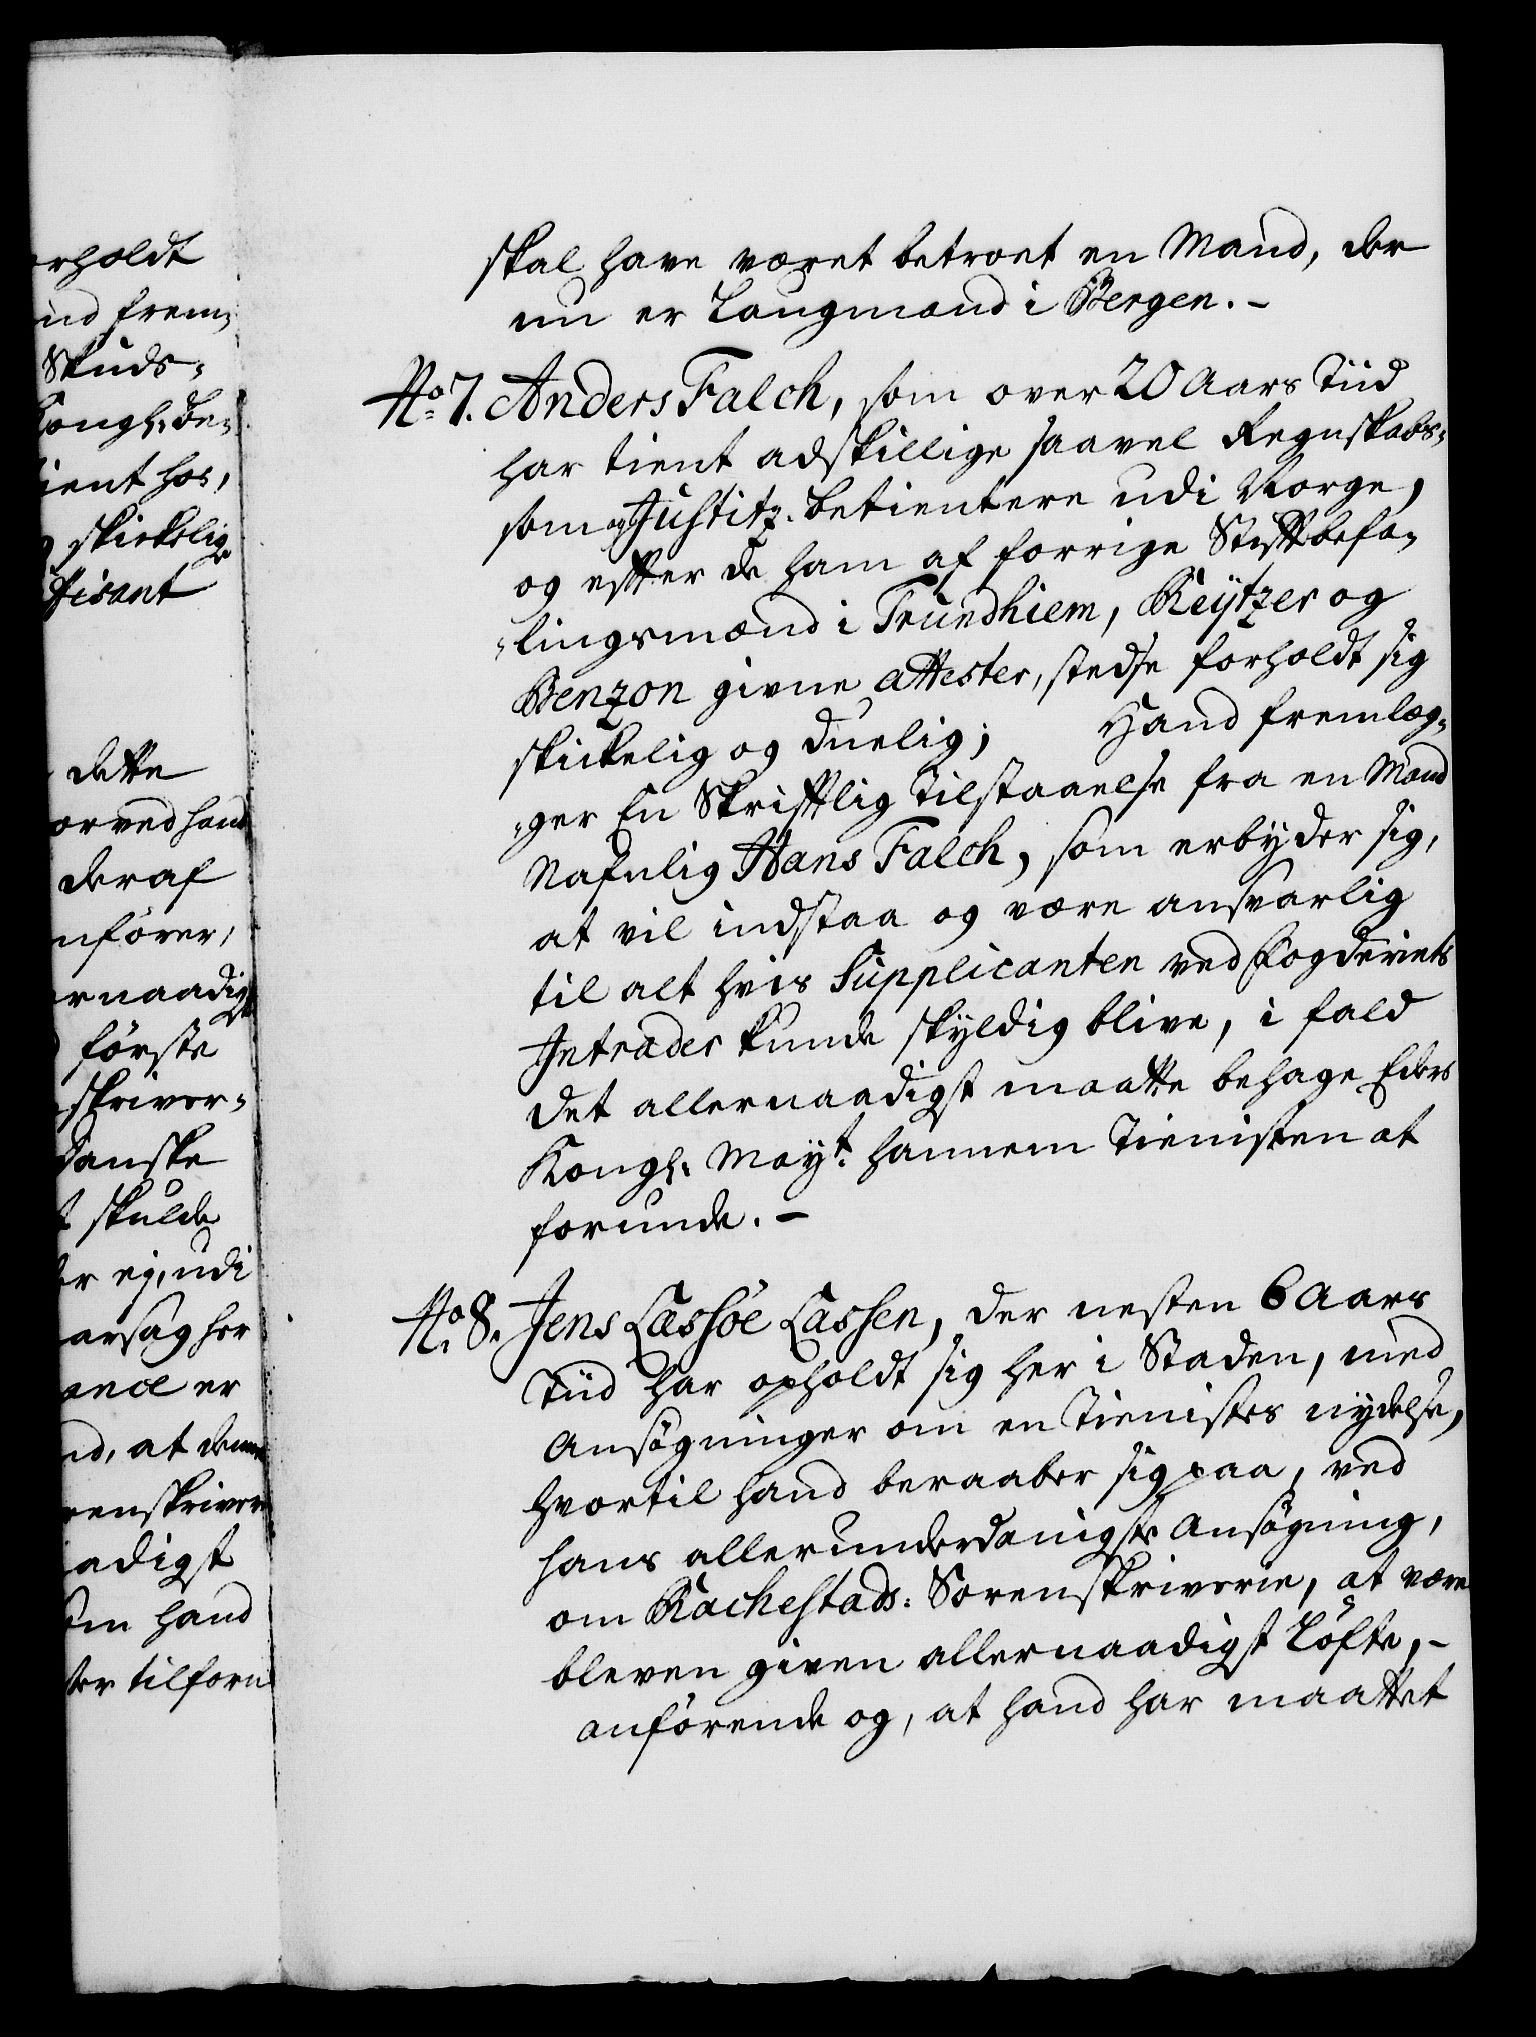 rholdt
nd frem,
Skuds-
Kongl. Be-
ient hos,
skickelig
fisant
dette
orved hand
deraf
nfører,
rnaadigst
første
skriver-
danske
t skulde
er ej, udi
arsag her
ance er
nd, at denne
renskriver
adigst
om hand
ter tilforn
skal have været betroet en Mand, der
nu er Laugmand i Bergen. -
No 7. Anders Falch, som over 20 Aars Tiid
har tient adskillige saavel Regnskabs-
som og Justitz-betientere udi Norge,
og efter de ham af forrige Stiftbefa-
-lingsmænd i Trundhiem, Keÿtzer og
Benzon givne attester, stedse forholdt sig
skickelig og duelig; Hand fremlæg-
-ger En Skrifftlig Tilstaaelse fra en Mand
Nafnlig Hans Falch, som erbyder sig,
at vil indstaa og være ansvarlig
til alt hvis Supplicanten ved Fogderiets
Intrader kunde skyldig blive, i fald
det allernaadigst maatte behage Eders
Kongl. Mayt. hannem Tienisten at
forunde. -
No 8. Jens Læssöe Lassen, der nesten 6 Aars
Tiid har opholdt sig her i Staden, med
Ansøgninger om en Tienistes nydelse,
hvortil hand beraaber sig paa, ved
hans allerunderdanigste Ansøgning,
om Rachestads-Sorenskriverie, at være
bleven given allernaadigst Løfte, -
anførende og, at hand har maattet